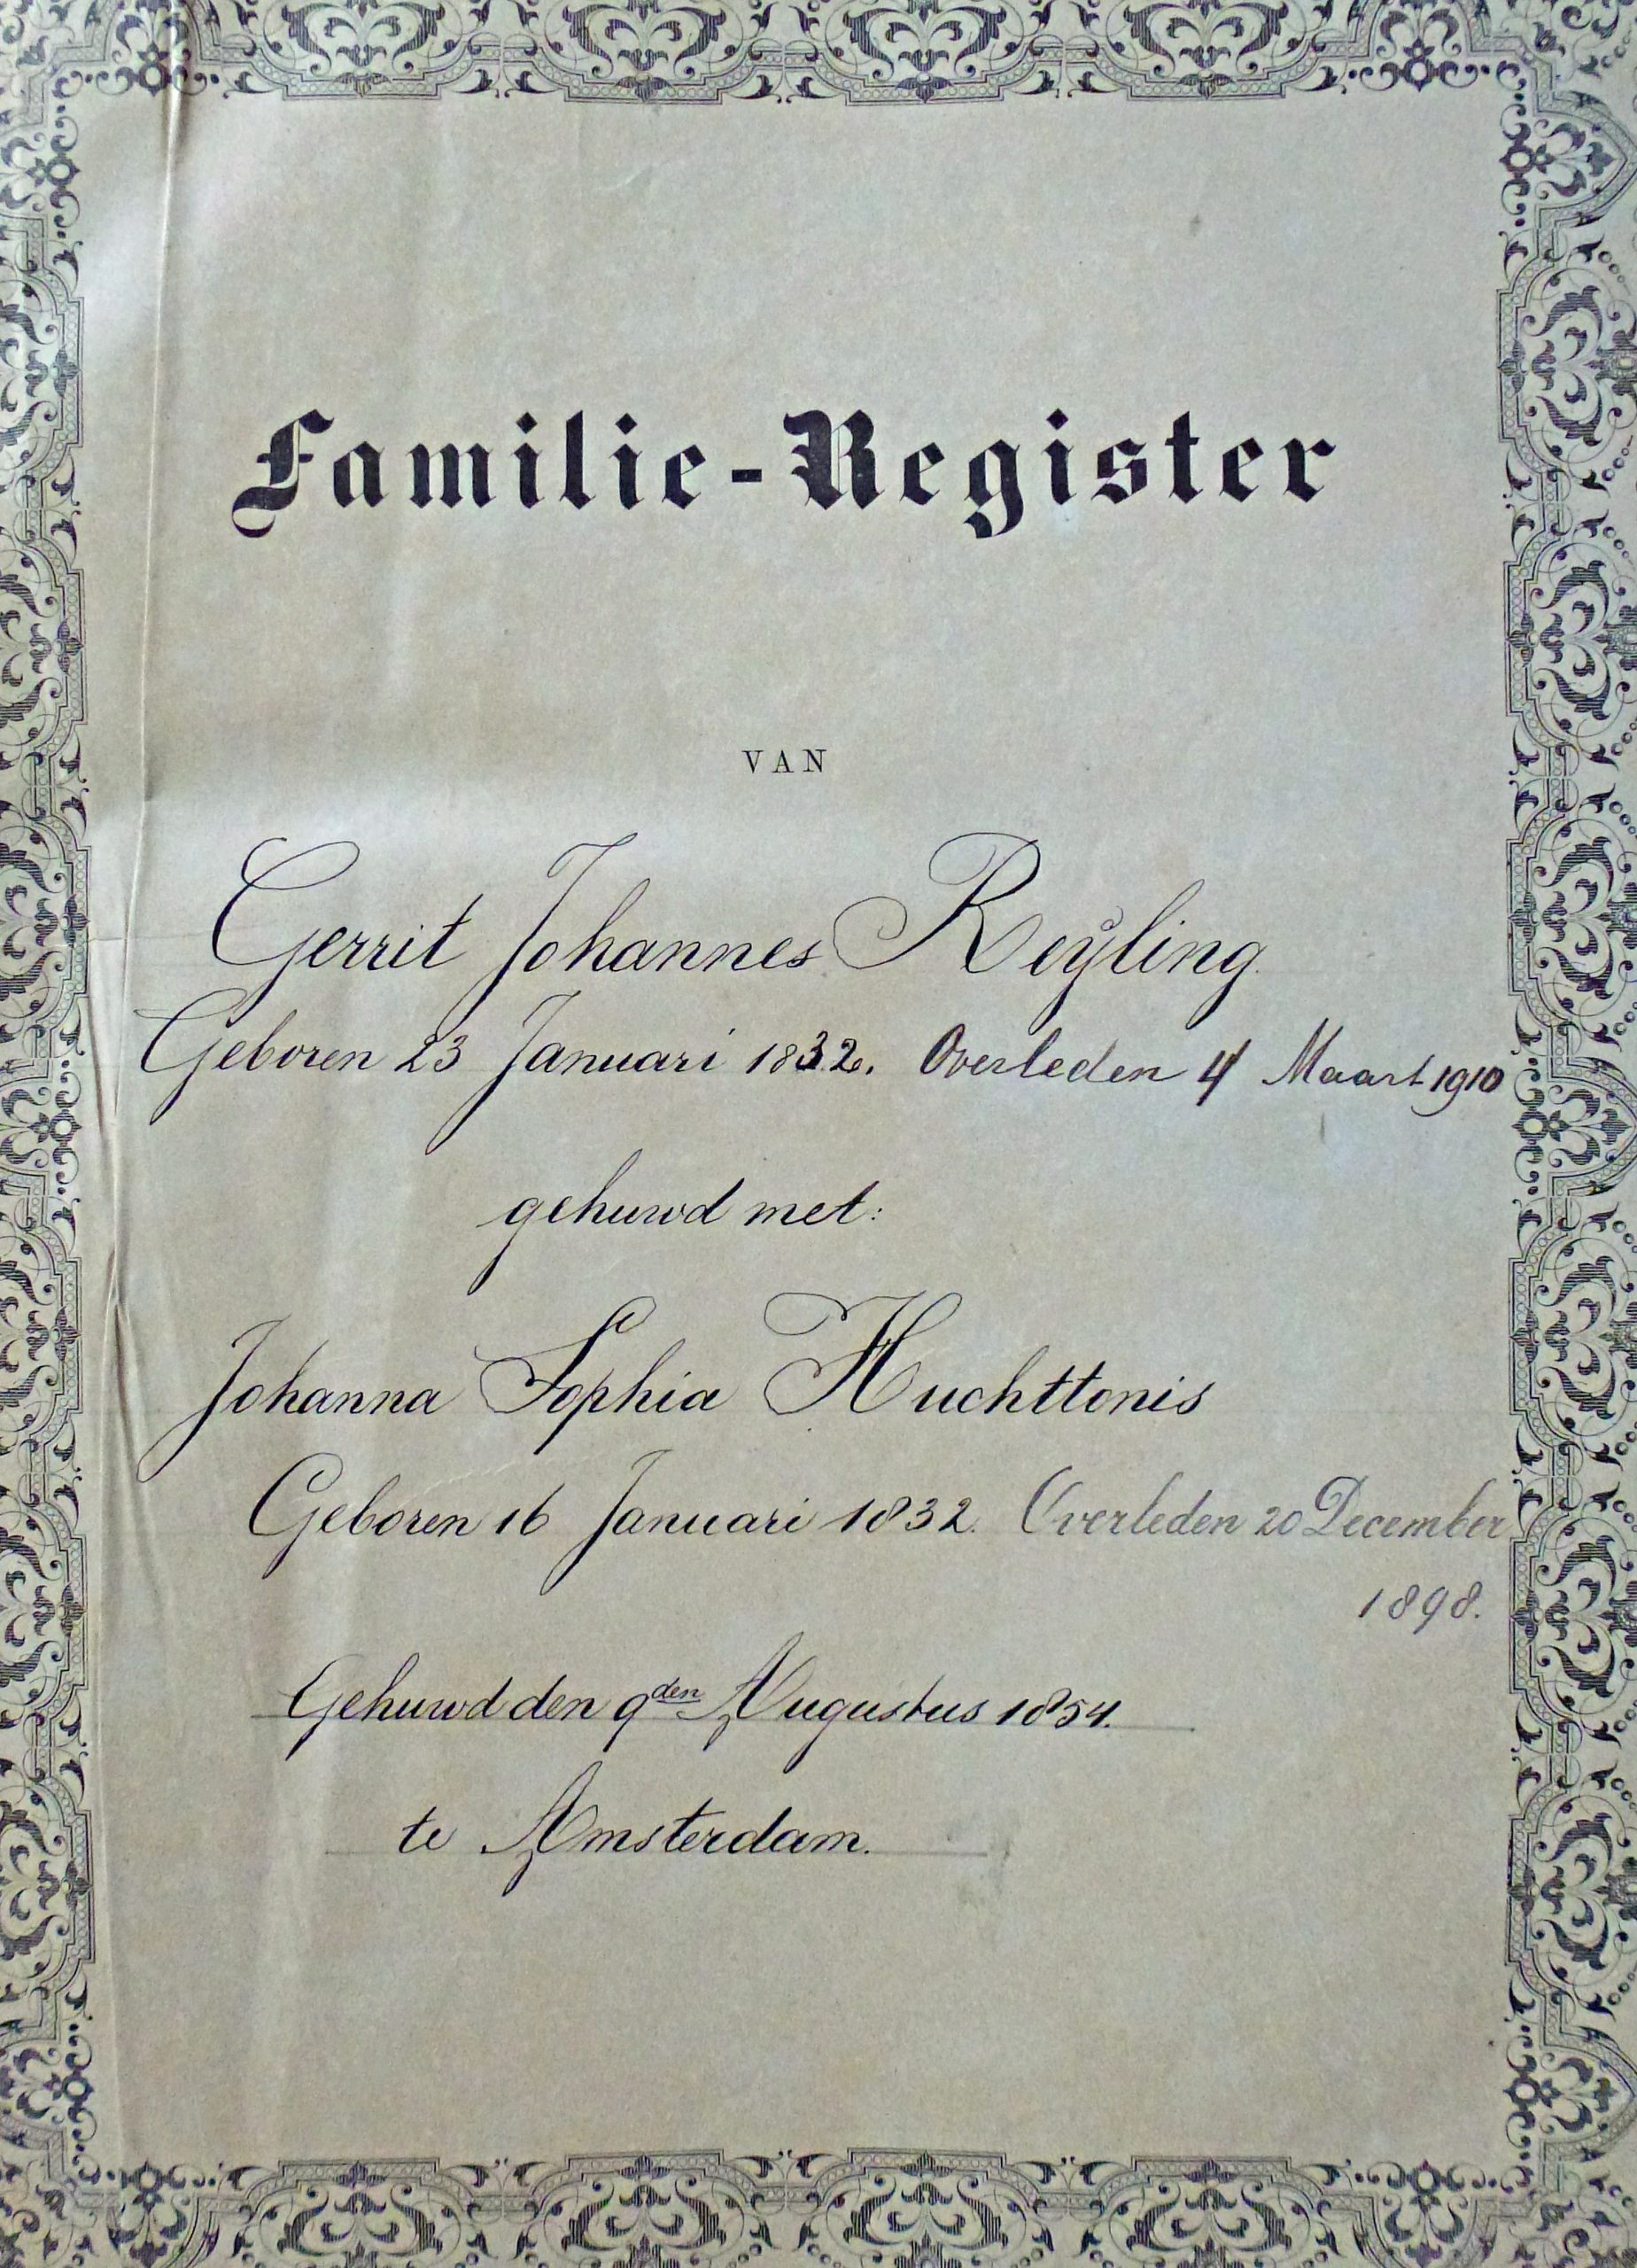 Familie-Register
VAN
Gerrit Johannes Reÿling.
Geboren 23 Januari 1832. Overleden 4 Maart 1910
gehuwd met:
Johanna Sophia Huchttonis
Geboren 16 Januari 1832. Overleden 20 December
1898.
Gehuwd den 9den Augustus 1854.
te Amsterdam.